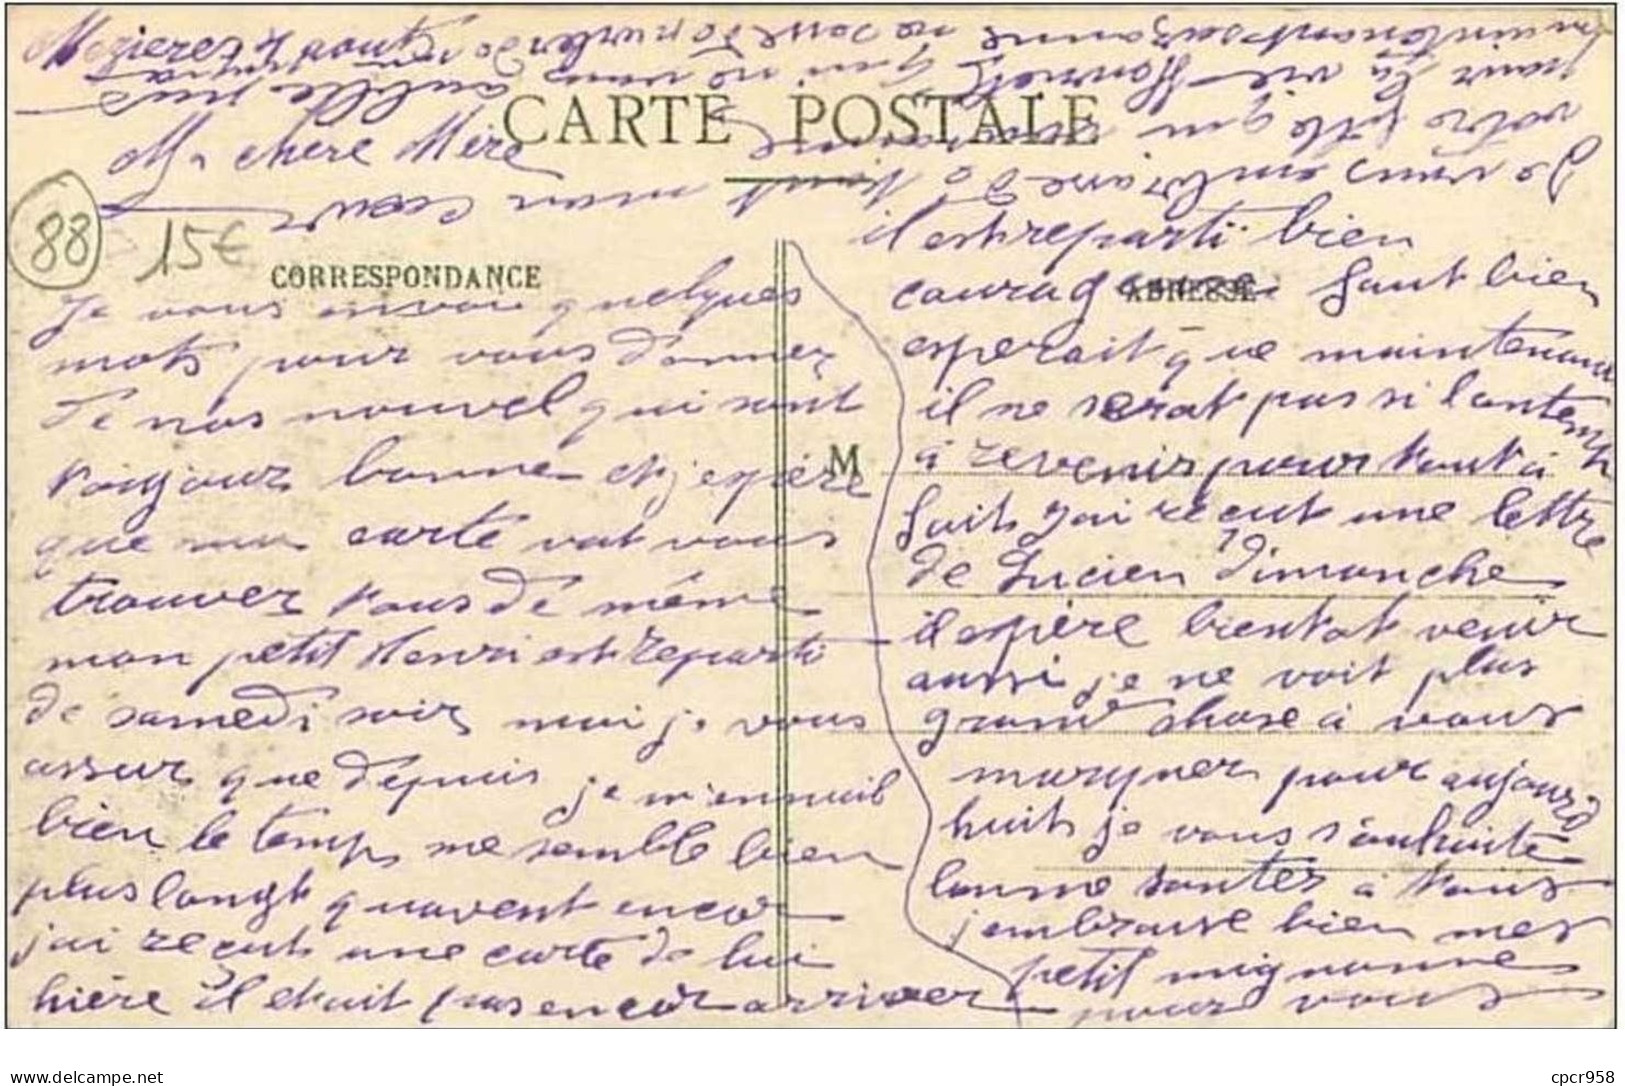 Mezieres 4 aout
CARTE POSTALE
Ma chere Mère
88
15€
CORRESPONDANCE
Je vous envoie quelques
mots pour vous donner
de nos nouvel qui sont
toujour bonne et j'espére
que ma carte vat vous
trouver tous de même
mon petit Henri est reparti
de samedi soir moi je vous
assur que depuis je m'ennuit
bien le temps me semble bien
plus longt quavent encor
jai recut une carte de lui
hière il etait pas encor arriver
ADRESSE
M
il est reparti bien
courag faut bien
esperait que maintenant
il ne serat pas si lontemp
à revenir pour tout à
fait jai récut une lettre
de Lucien dimanche
il espére bientot venir
aussi je ne voit plus
grand chose à vous
marquer pour aujourd
huit je vous souhaite
bonne santer à tous
j'embrasse bien mes
petit mignonne
pour vous
Je vous embrasse de tout mon cœur
votre fille qui vous aime
pour la vie Henriette qui ne vous oublie pas
maintenant suzanne ne cesse de parler de
cpcr958